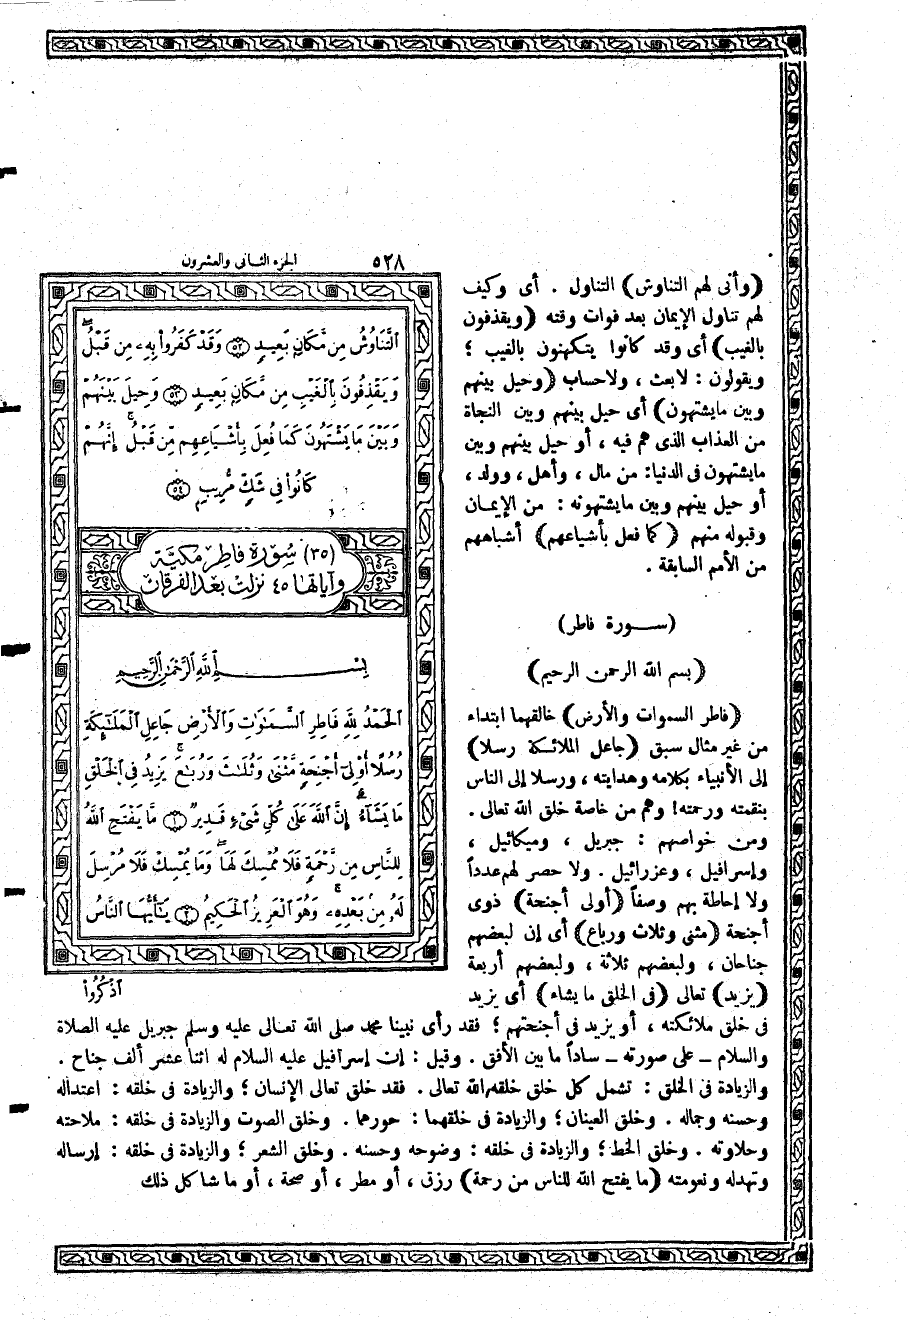 الجزء الثانى والعشرون
٥٢٨
ٱلتَّنَاوُشُ مِن مَّكَانٍۭ بَعِيدٍ ﴿٥٢﴾ وَقَدْ كَفَرُوا۟ بِهِۦ مِن قَبْلُ ۖ
وَيَقْذِفُونَ بِٱلْغَيْبِ مِن مَّكَانٍۭ بَعِيدٍ ﴿٥٣﴾ وَحِيلَ بَيْنَهُمْ
وَبَيْنَ مَا يَشْتَهُونَ كَمَا فُعِلَ بِأَشْيَاعِهِم مِّن قَبْلُ ۚ إِنَّهُمْ
كَانُوا۟ فِى شَكٍّ مُّرِيبٍۭ ﴿٥٤﴾
(٣٥) سُورَة فَاطِر مَكيّة
وآياتها ٤٥ نزلت بعد الفرقان
بِسْمِ ٱللَّهِ ٱلرَّحْمَٰنِ ٱلرَّحِيمِ
ٱلْحَمْدُ لِلَّهِ فَاطِرِ ٱلسَّمَٰوَٰتِ وَٱلْأَرْضِ جَاعِلِ ٱلْمَلَٰٓئِكَةِ
رُسُلًا أُو۟لِىٓ أَجْنِحَةٍ مَّثْنَىٰ وَثُلَٰثَ وَرُبَٰعَ ۚ يَزِيدُ فِى ٱلْخَلْقِ
مَا يَشَآءُ ۚ إِنَّ ٱللَّهَ عَلَىٰ كُلِّ شَىْءٍ قَدِيرٌ ﴿١﴾ مَّا يَفْتَحِ ٱللَّهُ
لِلنَّاسِ مِن رَّحْمَةٍ فَلَا مُمْسِكَ لَهَا ۖ وَمَا يُمْسِكْ فَلَا مُرْسِلَ
لَهُۥ مِنۢ بَعْدِهِۦ ۚ وَهُوَ ٱلْعَزِيزُ ٱلْحَكِيمُ ﴿٢﴾ يَٰٓأَيُّهَا ٱلنَّاسُ
ٱذْكُرُوا۟
(وأنى لهم التناوش) التناول . أى وكيف
لهم تناول الإيمان بعد فوات وقته (ويقذفون
بالغيب) أى وقد كانوا يتكهنون بالغيب ؛
ويقولون : لابعث ، ولاحساب (وحيل بينهم
وبين مايشتهون) أى حيل بينهم وبين النجاة
من العذاب الذى هم فيه ، أو حيل بينهم وبين
مايشتهون فى الدنيا : من مال ، وأهل ، وولد ،
أو حيل بينهم وبين مايشتهونه : من الإيمان
وقبوله منهم (كما فعل بأشياعهم) أشباههم
من الأمم السابقة .
(سورة فاطر)
(بسم الله الرحمن الرحيم)
(فاطر السموات والأرض) خالقهما ابتداء
من غير مثال سبق (جاعل الملائكة رسلا)
إلى الأنبياء بكلامه وهدايته ، ورسلا إلى الناس
بنقمته ورحمته! وهم من خاصة خلق الله تعالى .
ومن خواصهم : جبريل ، وميكائيل ،
وإسرافيل ، وعزرائيل . ولا حصر لهم عدداً
ولا إحاطة بهم وصفاً (أولى أجنحة) ذوى
أجنحة (مثنى وثلاث ورباع) أى إن لبعضهم
جناحان ، ولبعضهم ثلاثة ، ولبعضهم أربعة
(يزيد) تعالى (فى الخلق ما يشاء) أى يزيد
فى خلق ملائكته ، أو يزيد فى أجنحتهم ؛ فقد رأى نبينا محمد صلى الله تعالى عليه وسلم جبريل عليه الصلاة
والسلام ــ على صورته ــ ساداً ما بين الأفق . وقيل : إن إسرافيل عليه السلام له اثنا عشر ألف جناح .
والزيادة فى الخلق : تشمل كل خلق خلقه الله تعالى . فقد خلق تعالى الإنسان ؛ والزيادة فى خلقه : اعتداله
وحسنه وجماله . وخلق العينان ؛ والزيادة فى خلقهما : حورهما . وخلق الصوت والزيادة فى خلقه : ملاحته
وحلاوته . وخلق الخط ؛ والزيادة فى خلقه : وضوحه وحسنه . وخلق الشعر ؛ والزيادة فى خلقه : إرساله
وتهدله ونعومته (ما يفتح الله للناس من رحمة) رزق ، أو مطر ، أو صحة ، أو ما شاكل ذلك